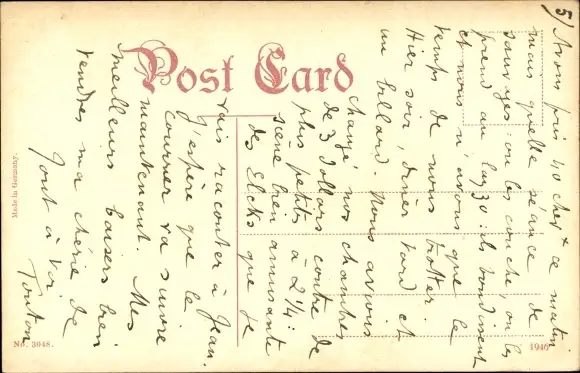 5)
Avons pris 40 chev + ce matin
mais quelle séance de
sauvages: on les couche, on les
prend au lazzo: ils bondissent
et nous n'avons que le
temps de nous trotter.
Hier soir, dîner tard et
un billard. Nous avions
changé nos chambres
de 3 dollars contre de
plus petites à 2 1/4:
scène bien amusante
des Elcks que je
vais raconter à Jean.
J'espère que le
courrier va suivre
maintenant. Mes
meilleurs baisers bien
tendres ma chérie de
Tout à Toi.
Tonton
Post Card
Made in Germany.
No. 3048.
1946